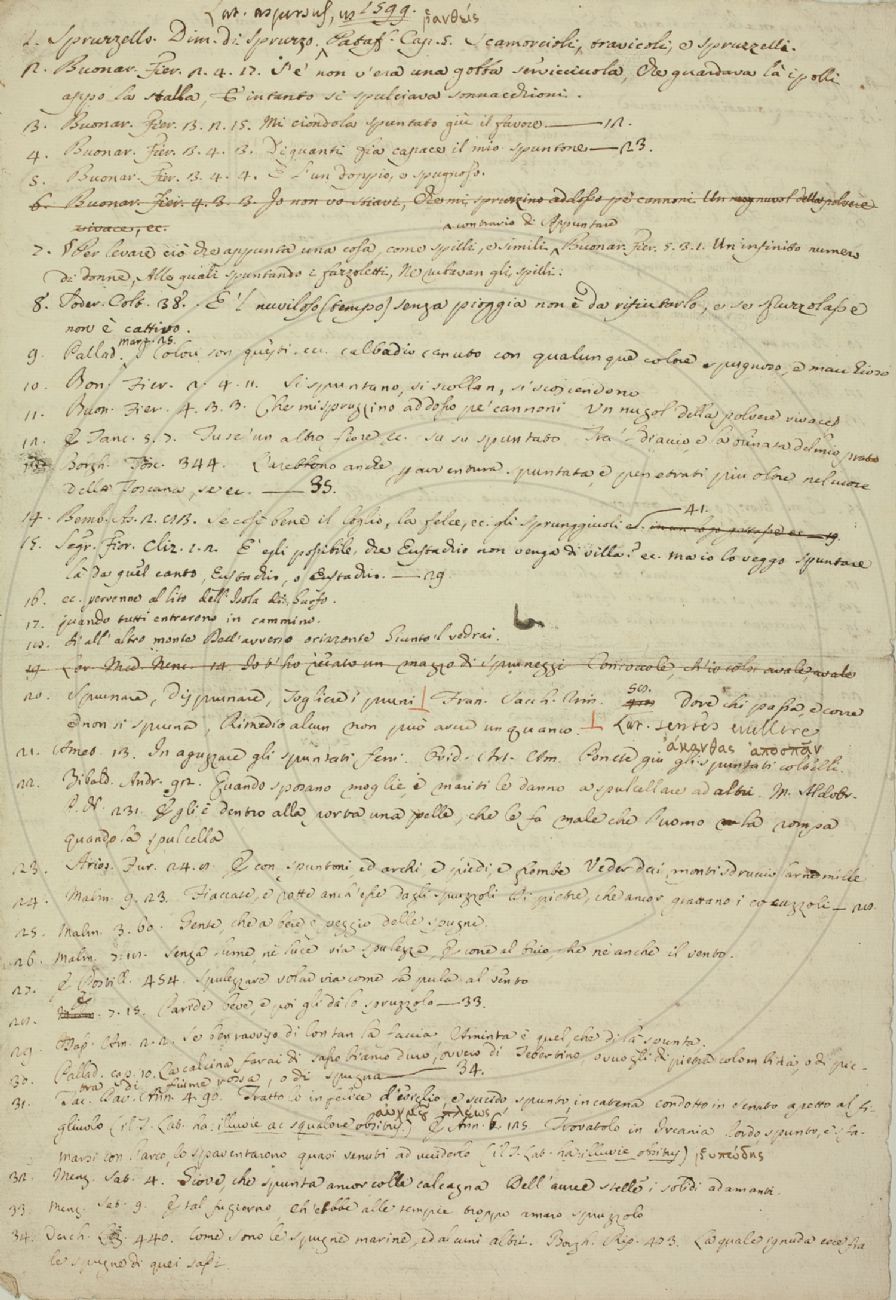 Lat. aspersus, us 1599. ῥανθείς
1. Spruzzello. Dim. di Spruzzo. Pataff. Cap. 5. Scamorcioli, travicoli, e spruzzelli.
2. Buonar. Fier. 2. 4. 17. S'e' non v'era una gobba servicciuola, Che guardava là i polli
appo la stalla, E intanto si spulciava sonnacchioni.
3. Buonar. Fier. 3. 2. 15. Mi ciondola spuntato giù il favore. — 12.
4. Buonar. Fier. 3. 4. 3. Di quanti fia capace il mio spuntone — 23.
5. Buonar. Fier. 3. 4. 4. E l'un doppio, e spugnoso.
6. Buonar. Fier. 4. 3. 3. Io non vo stiavi, Che mi spruzzino addosso pe' cannoni Un nugol della polvere
vivace, ec.
a contrario di Appuntare
7. § Per levare ciò che appunta una cosa, come spilli, e simili. Buonar. Fier. 5. 3. 1. Un infinito numero
di donne, Alle quali spuntando i fazzoletti, Ne rubavan gli spilli:
8. Soder. Colt. 38. E 'l nuviloso (tempo) senza pioggia non è da rifiutarlo, e se spruzzolasse
non è cattivo.
9. Pallad. marz. 25. I colori son questi ec. calbadio canuto con qualunque colore spugnoso, e macchioso
10. Bon. Fier. 2. 4. 11. Si spuntano, si scollan, si scoscendono
11. Buon. Fier. 4. 3. 3. Che mi spruzzino addosso pe' cannoni Un nugol della polvere vivace
12. E Tanc. 5. 7. Tu se' un altro fiore, ec. su su spuntato Tra 'l diaccio, e la brinata del mio prato
13. Borgh. Tosc. 344. Sarebbono anche per avventura spuntati, e penetrati più oltre nel cuore
della Toscana, se ec. — 35.
14. Bemb. As. 2. 123. Se così bene il loglio, la felce, ec. gli sprunggiuoli — 41.
15. Segr. Fior. Cliz. 2. 2. E' egli possibile, che Eustachio non venga di villa? ec. ma io lo veggo spuntare
là da quel canto, Eustachio, o Eustachio. — 29.
16. ec. pervenne al lito dell'Isola di Gurfo.
17. quando tutti entrarono in cammino.
18. di all'altro monte Dell'avverso orizzonte Giunto il vedrai.
19. Lor. Med. Nenc. 14. Io t'ho recato un mazzo di spruneggi Con coccole, ch'io colsi avale avale
20. Sprunare, Disprunare, Togliere i pruni Fran. Sacch. rim. Dove chi passa, e corre
e non si spruna, Rimedio alcun non può avere unquanco. Lat. sentes evellere
ἀκάνθας ἀποσπᾶν
21. Amet. 13. In aguzzare gli spuntati ferri. Ovid. Art. Am. Ponete giù gli spuntati coltelli.
22. Zibald. Andr. 92. Quando sposano moglie i mariti le danno a spulcellare ad altri. M. Aldobr.
P. N. 231. Egli è dentro alla porta una pelle, che le fa male che l'uomo la rompa
quando la spulcella
23. Arios. Fur. 24. 8. E con spuntoni ed archi, e spiedi, e frombe Veder dai monti sdrucciolarne mille
24. Malm. 9. 23. Fiaccate, e rotte anch'esse dagli spruzzoli Di pietre, che ancor grattano i cocuzzoli — 28.
25. Malm. 3. 60. Gente, che a bere è peggio delle spugne.
26. Malm. 7. 12. Senza lume, nè luce via spulezza, E corre al buio, che nè anche il vento.
27. E Postill. 454. Spulezzare volar via come la pula al vento
28. E 7. 15. Paride beve, e poi gli dà lo spruzzolo — 33.
29. Tass. Am. 2. 2. Se ben ravviso di lontan la faccia, Aminta è quel, che di là spunta.
30. Pallad. cap. 10. La calcina farai di sasso bianco duro, ovvero di Tebertino, o vuogli di pietra colombina, o di pie-
tra di fiume rossa, o di spugna — 34.
31. Tac. Dav. Ann. 4. 90. Tratto lo infelice d'esilio, e sucido spunto in catena condotto in senato a petto al fi-
gliuolo (il T. Lat. ha: illuvie ac squalore obsitus.) E Ann. 6. 125. Trovatolo in Ircania lordo spunto, e sfa-
marsi con l'arco, lo spaventarono quasi venuti ad ucciderlo (il T. Lat. ha: illuvie obsitus) ῥυπώδης
32. Menz. Sat. 4. Giove, che spunta ancor colle calcagna Dell'auree stelle i solidi adamanti.
33. Menz. Sat. 9. E stal fu giorno, Ch'ebbe alle tempie troppo amaro spruzzolo
34. Varch. Lez. 440. Come sono le spugne marine, ed alcuni altri. Borgh. Rip. 403. La quale ignuda esce fra
le spugne di quei sassi.